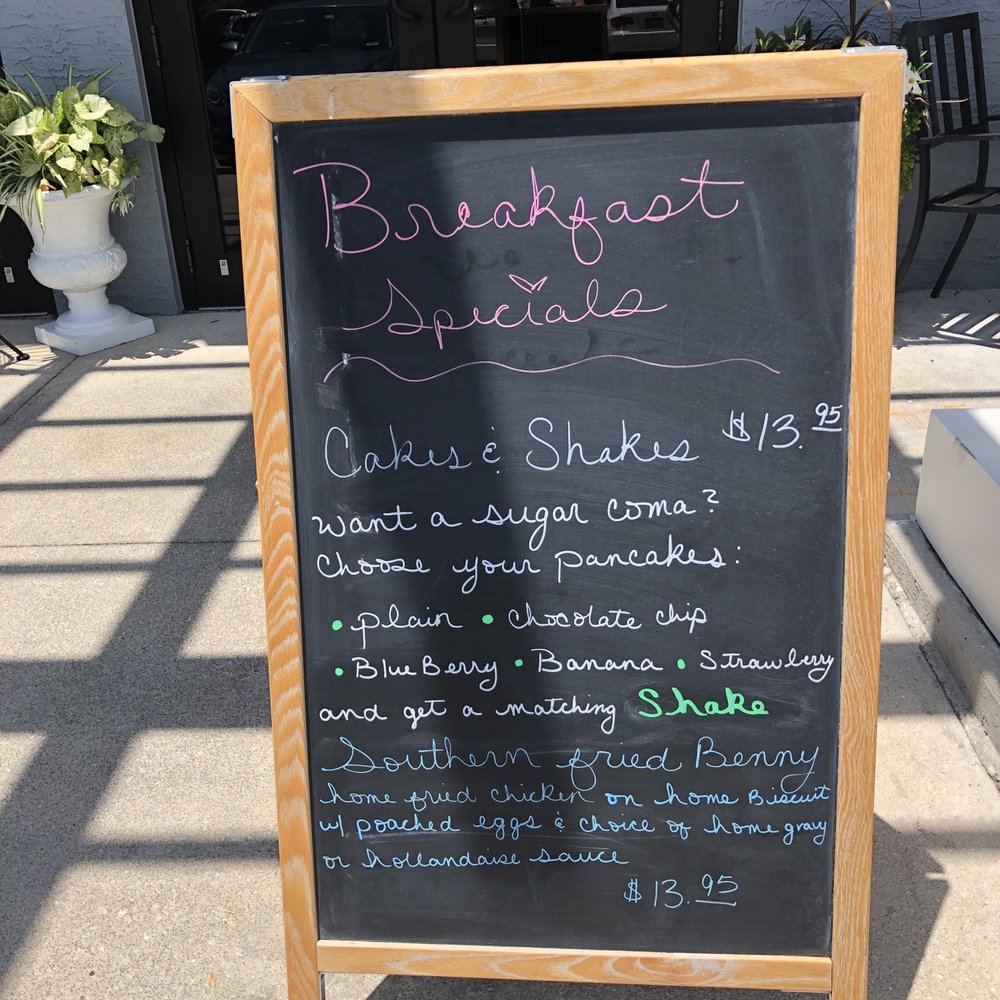 Breakfast
Specials
Cakes & Shakes $13.95
Want a sugar coma?
Choose your pancakes:
• plain • chocolate chip
• BlueBerry • Banana • Strawberry
and get a matching Shake
Southern fried Benny
home fried chicken on home Biscuit
w/ poached eggs & choice of home gravy
or hollandaise sauce
$13.95